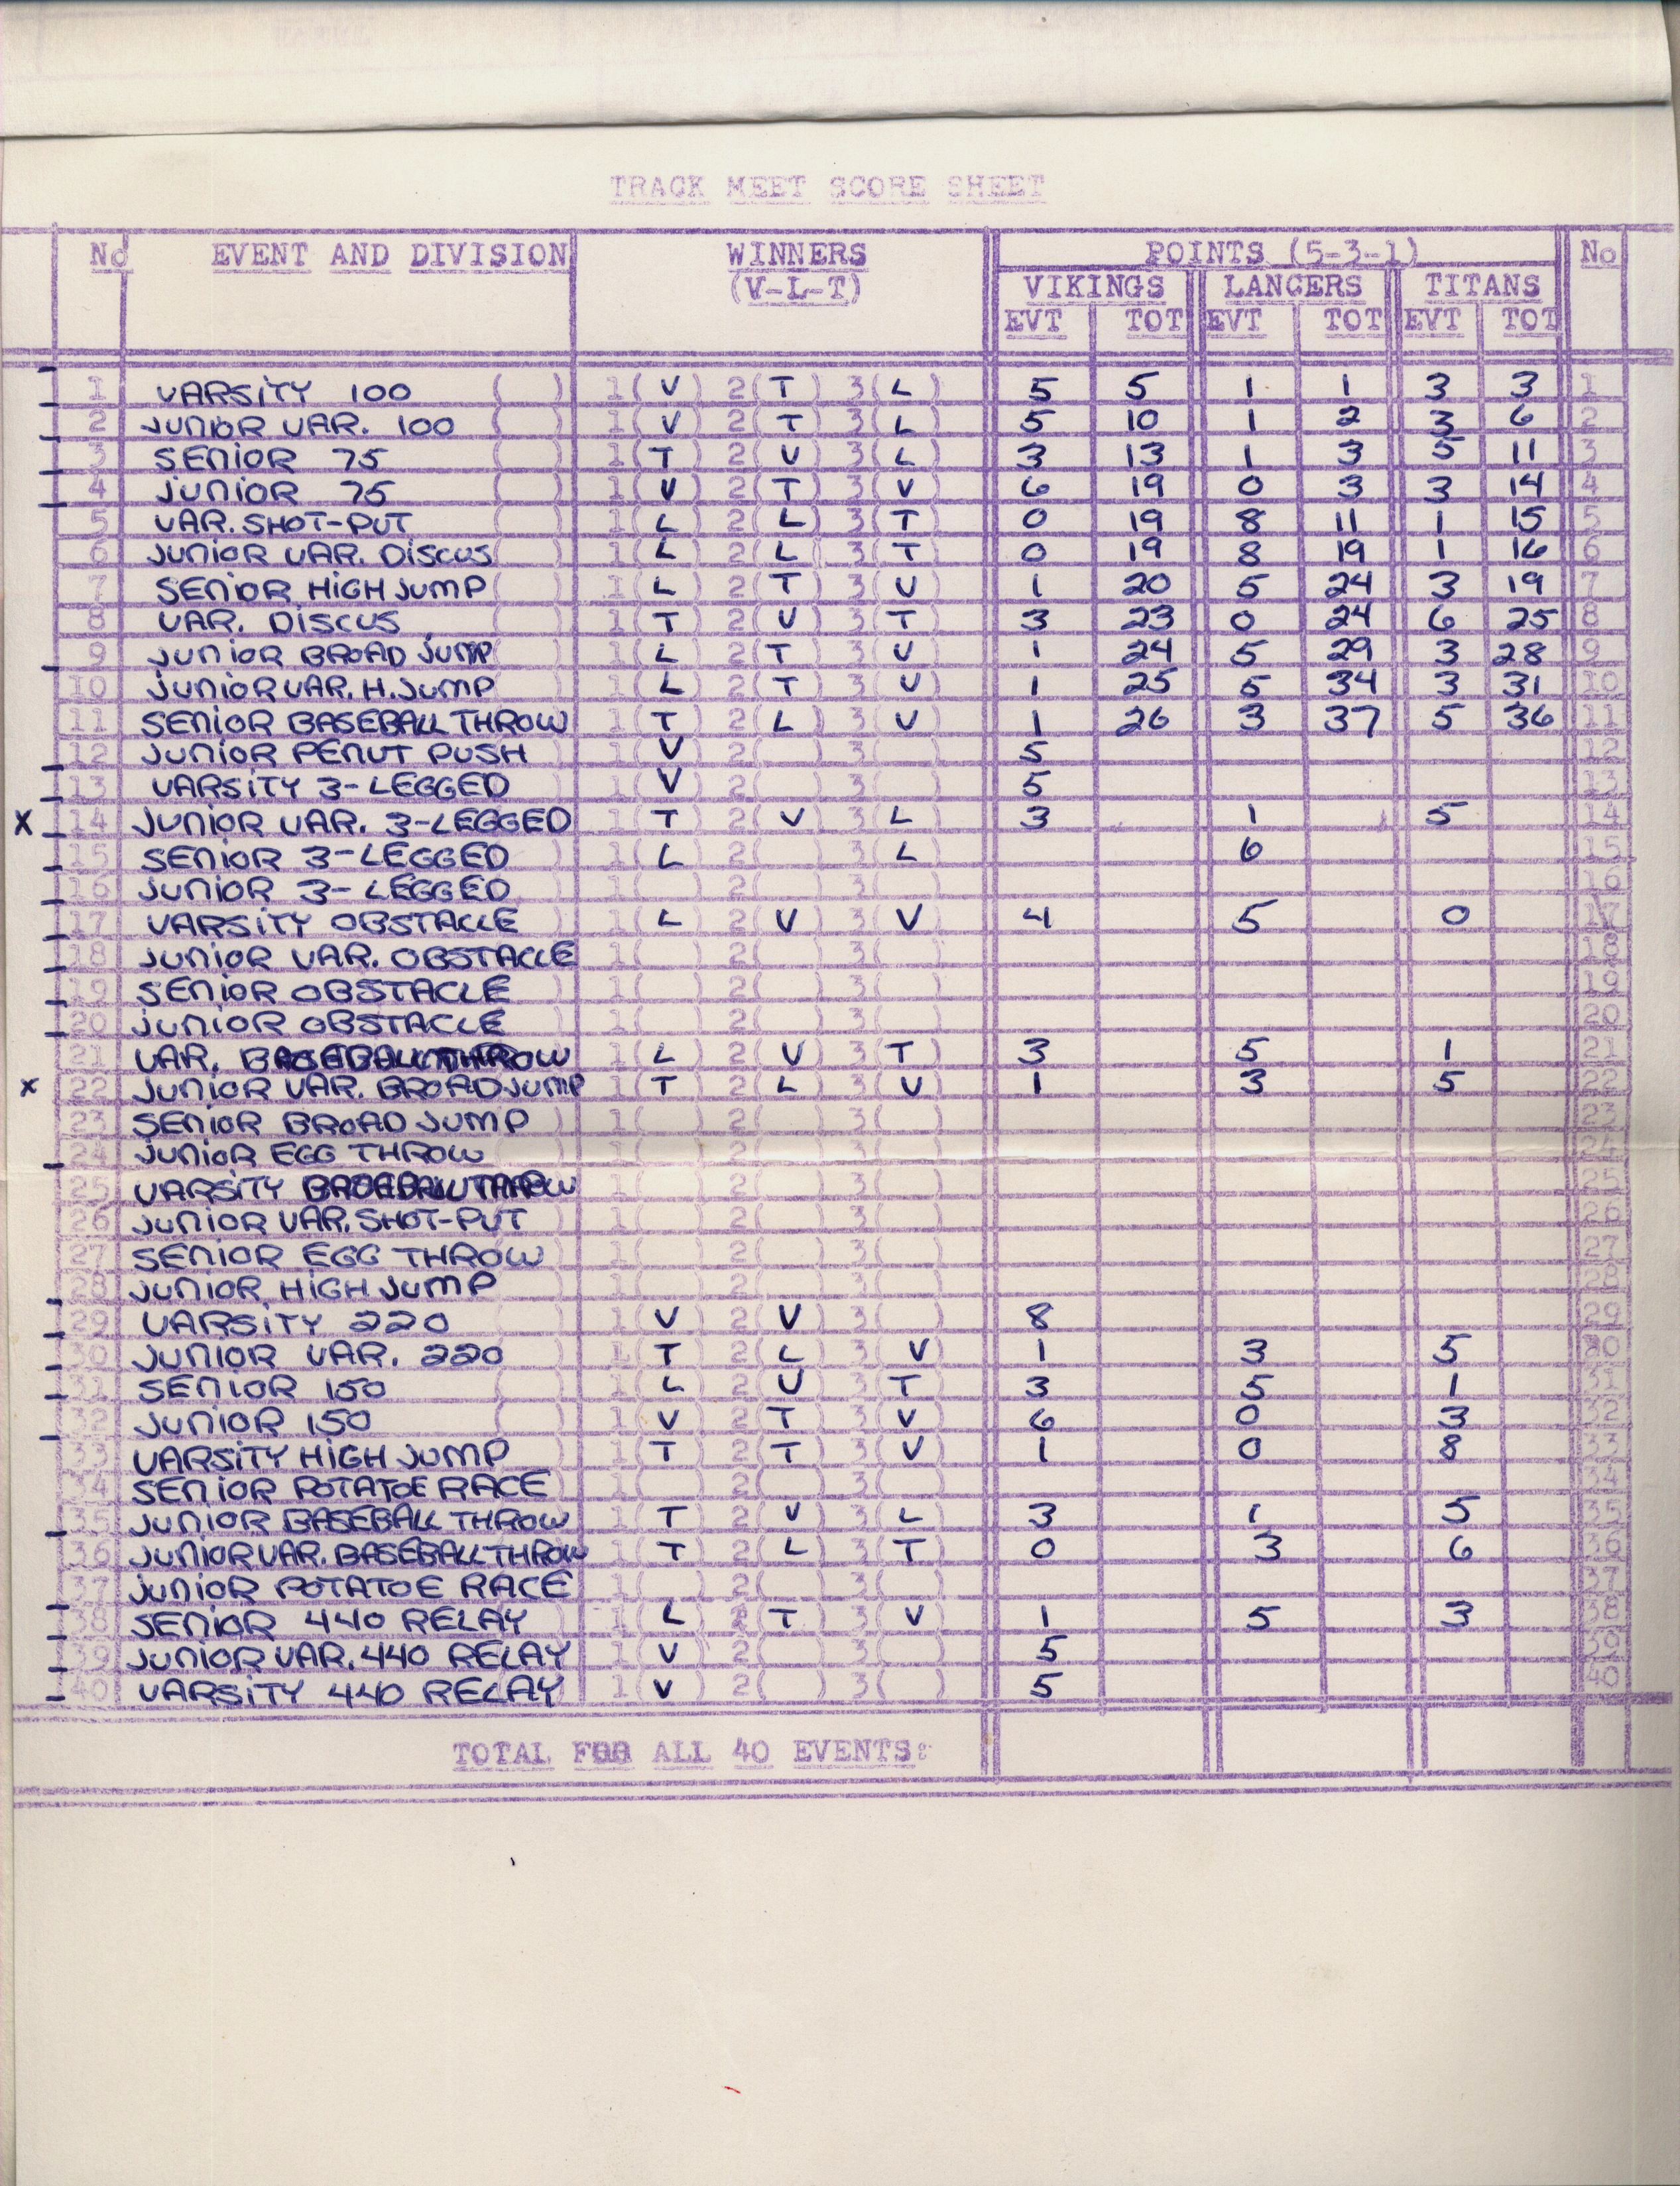 TRACK MEET SCORE SHEET
No EVENT AND DIVISION WINNERS POINTS (5-3-1) No
(V-L-T) VIKINGS LANCERS TITANS
EVT TOT EVT TOT EVT TOT
1 VARSITY 100 ( ) 1( V ) 2( T ) 3( L ) 5 5 1 1 3 3 1
2 JUNIOR VAR. 100 ( ) 1( V ) 2( T ) 3( L ) 5 10 1 2 3 6 2
3 SENIOR 75 ( ) 1( T ) 2( V ) 3( L ) 3 13 1 3 5 11 3
4 JUNIOR 75 ( ) 1( V ) 2( T ) 3( V ) 6 19 0 3 3 14 4
5 VAR. SHOT-PUT ( ) 1( L ) 2( L ) 3( T ) 0 19 8 11 1 15 5
6 JUNIOR VAR. DISCUS ( ) 1( L ) 2( L ) 3( T ) 0 19 8 19 1 16 6
7 SENIOR HIGH JUMP ( ) 1( L ) 2( T ) 3( V ) 1 20 5 24 3 19 7
8 VAR. DISCUS ( ) 1( T ) 2( V ) 3( T ) 3 23 0 24 6 25 8
9 JUNIOR BROAD JUMP ( ) 1( L ) 2( T ) 3( V ) 1 24 5 29 3 28 9
10 JUNIOR VAR. H. JUMP ( ) 1( L ) 2( T ) 3( V ) 1 25 5 34 3 31 10
11 SENIOR BASEBALL THROW 1( T ) 2( L ) 3( V ) 1 26 3 37 5 36 11
12 JUNIOR PENUT PUSH ( ) 1( V ) 2( ) 3( ) 5 12
13 VARSITY 3-LEGGED ( ) 1( V ) 2( ) 3( ) 5 13
X 14 JUNIOR VAR. 3-LEGGED 1( T ) 2( V ) 3( L ) 3 1 5 14
15 SENIOR 3-LEGGED ( ) 1( L ) 2( ) 3( L ) 6 15
16 JUNIOR 3-LEGGED ( ) 1( ) 2( ) 3( ) 16
17 VARSITY OBSTACLE ( ) 1( L ) 2( V ) 3( V ) 4 5 0 17
18 JUNIOR VAR. OBSTACLE 1( ) 2( ) 3( ) 18
19 SENIOR OBSTACLE ( ) 1( ) 2( ) 3( ) 19
20 JUNIOR OBSTACLE ( ) 1( ) 2( ) 3( ) 20
21 VAR. BASEBALL THROW 1( L ) 2( V ) 3( T ) 3 5 1 21
X 22 JUNIOR VAR. BROAD JUMP 1( T ) 2( L ) 3( V ) 1 3 5 22
23 SENIOR BROAD JUMP ( ) 1( ) 2( ) 3( ) 23
24 JUNIOR EGG THROW ( ) 1( ) 2( ) 3( ) 24
25 VARSITY 1( ) 2( ) 3( ) 25
26 JUNIOR VAR. SHOT-PUT ( ) 1( ) 2( ) 3( ) 26
27 SENIOR EGG THROW ( ) 1( ) 2( ) 3( ) 27
28 JUNIOR HIGH JUMP ( ) 1( ) 2( ) 3( ) 28
29 VARSITY 220 ( ) 1( V ) 2( V ) 3( ) 8 29
30 JUNIOR VAR. 220 ( ) 1( T ) 2( L ) 3( V ) 1 3 5 30
31 SENIOR 150 ( ) 1( L ) 2( V ) 3( T ) 3 5 1 31
32 JUNIOR 150 ( ) 1( V ) 2( T ) 3( V ) 6 0 3 32
33 VARSITY HIGH JUMP ( ) 1( T ) 2( T ) 3( V ) 1 0 8 33
34 SENIOR POTATOE RACE ( ) 1( ) 2( ) 3( ) 34
35 JUNIOR BASEBALL THROW 1( T ) 2( V ) 3( L ) 3 1 5 35
36 JUNIOR VAR. BASEBALL THROW 1( T ) 2( L ) 3( T ) 0 3 6 36
37 JUNIOR POTATOE RACE 1( ) 2( ) 3( ) 37
38 SENIOR 440 RELAY ( ) 1( L ) 2( T ) 3( V ) 1 5 3 38
39 JUNIOR VAR. 440 RELAY 1( V ) 2( ) 3( ) 5 39
40 VARSITY 440 RELAY 1( V ) 2( ) 3( ) 5 40
TOTAL FOR ALL 40 EVENTS: